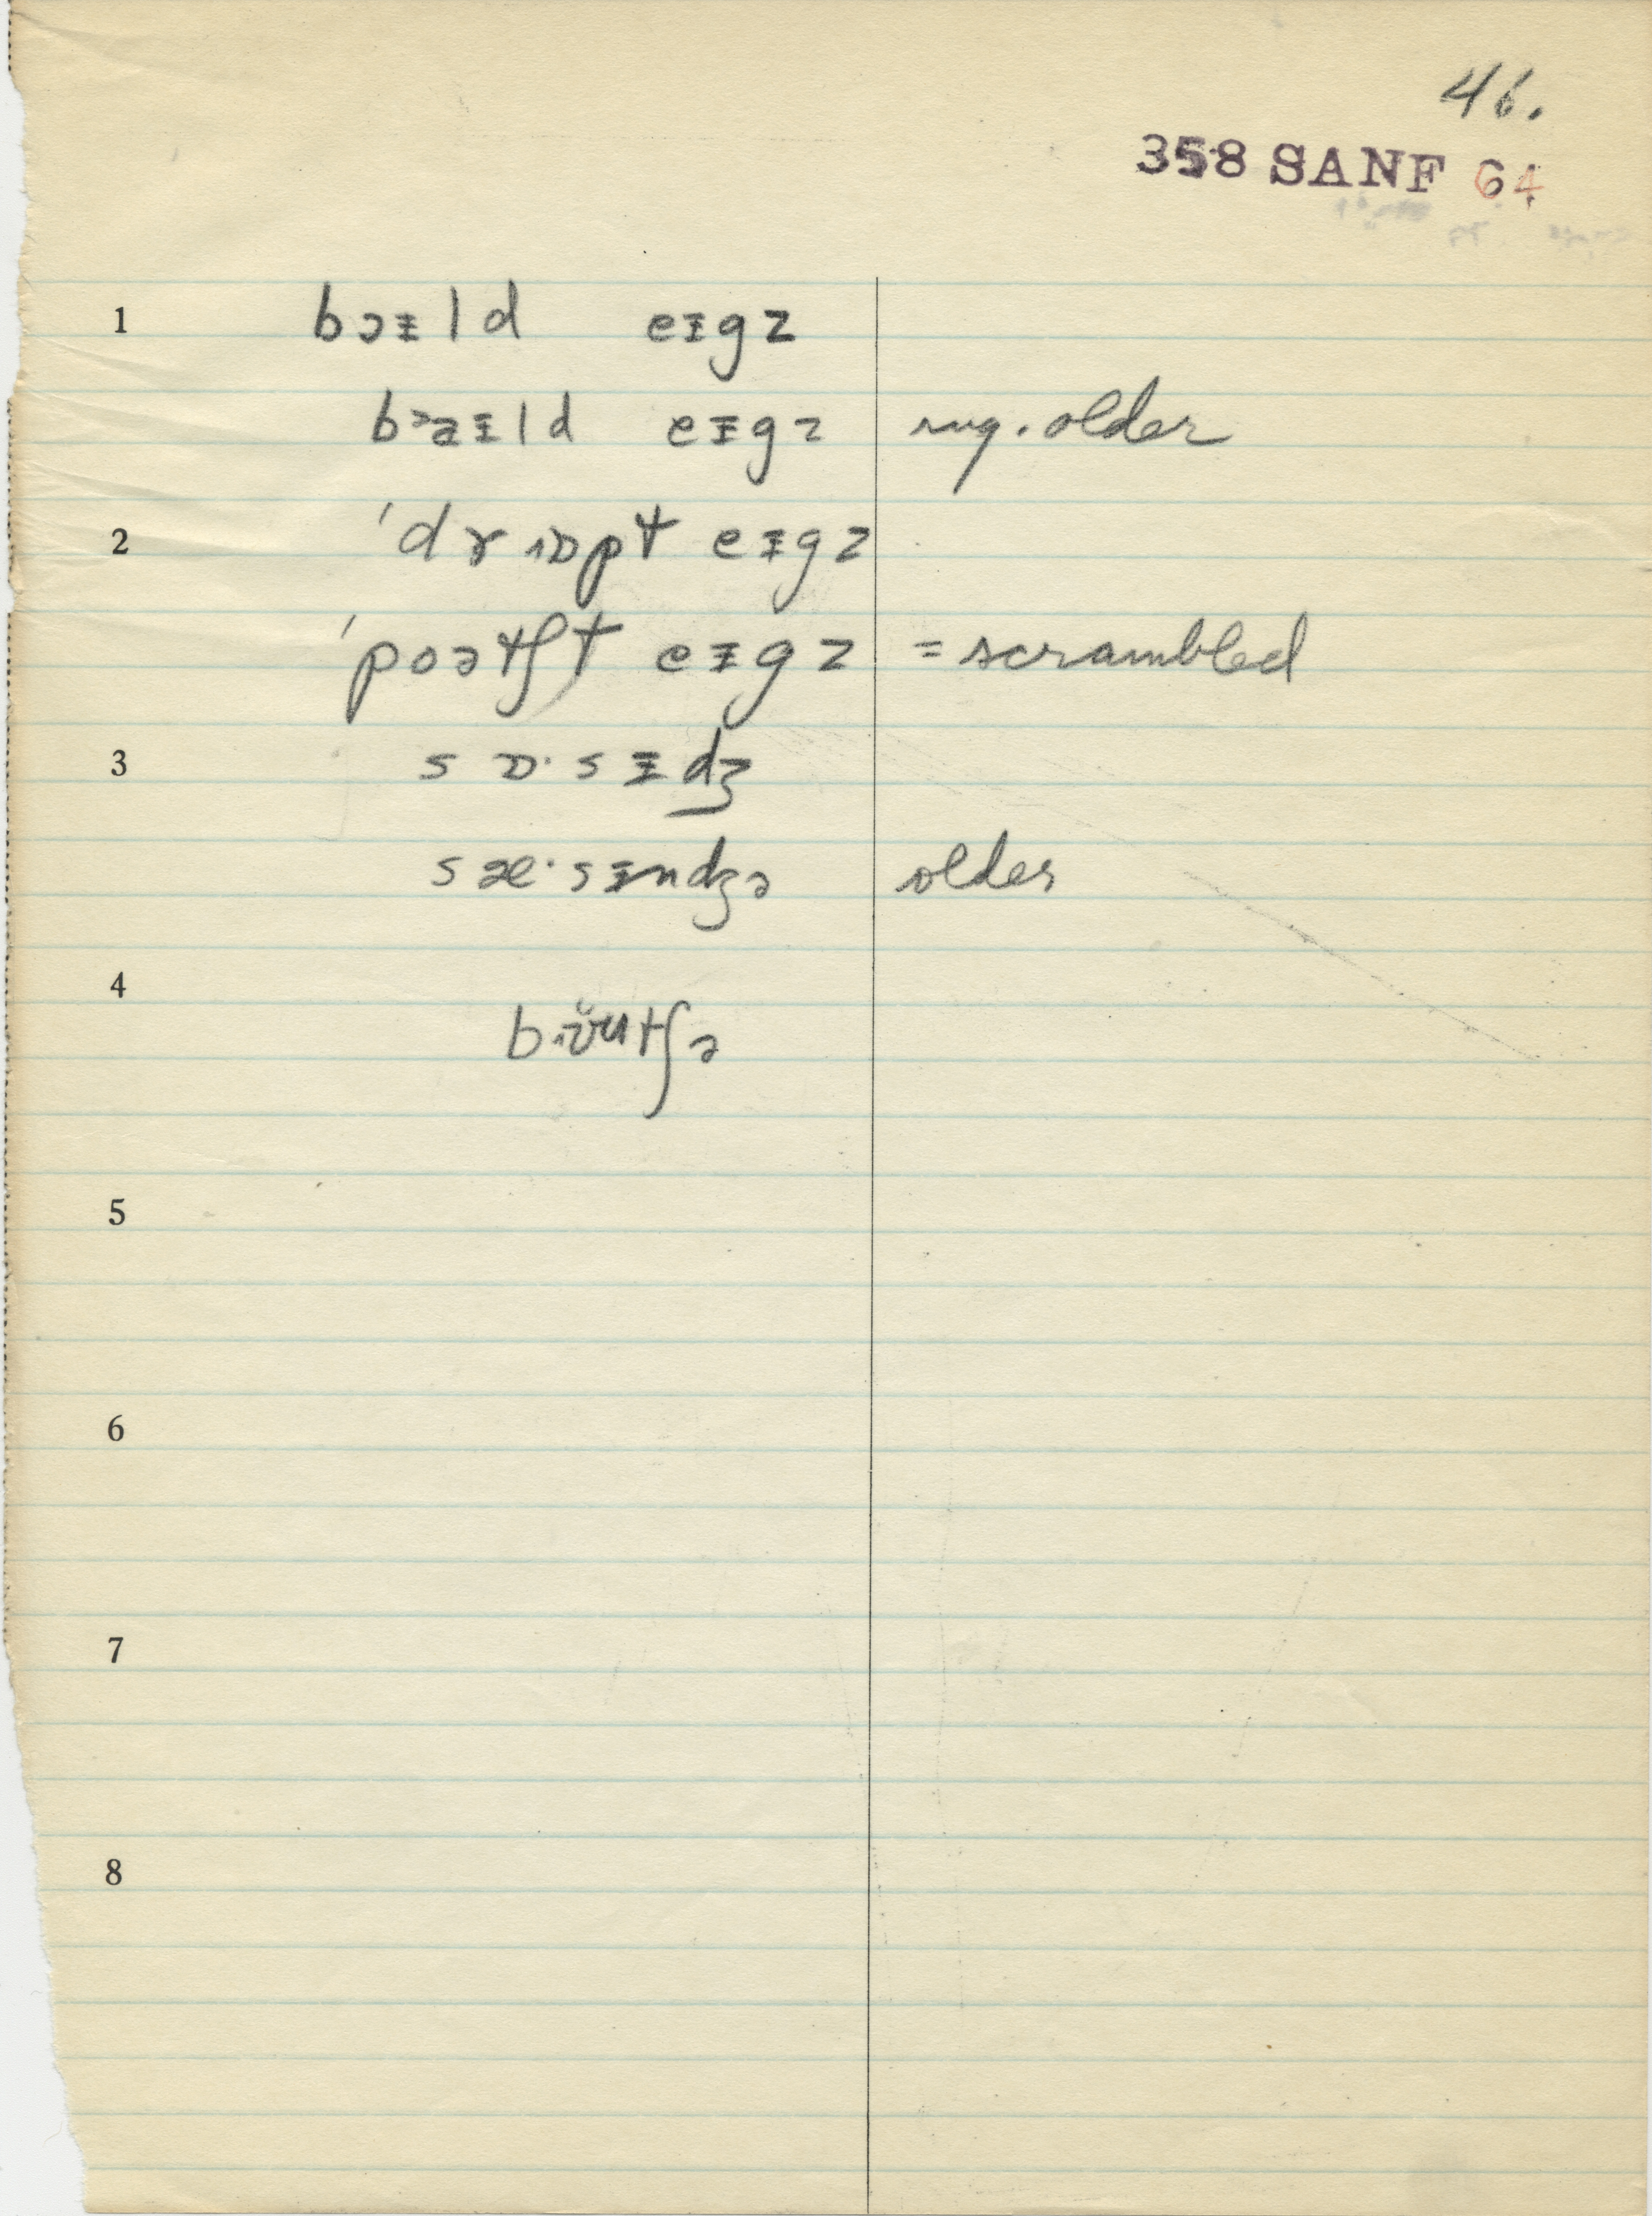 46.
358 SANF 64
1 bɔᵻld eᵻgz
bɔaᵻld eᵻgz sug. older
2 'drɒpt eᵻgz
'poətʃt eᵻgz = scrambled
3 sɒ·sᵻdʒ
sæ·sᵻndʒə older
4 bʊutʃə
5
6
7
8